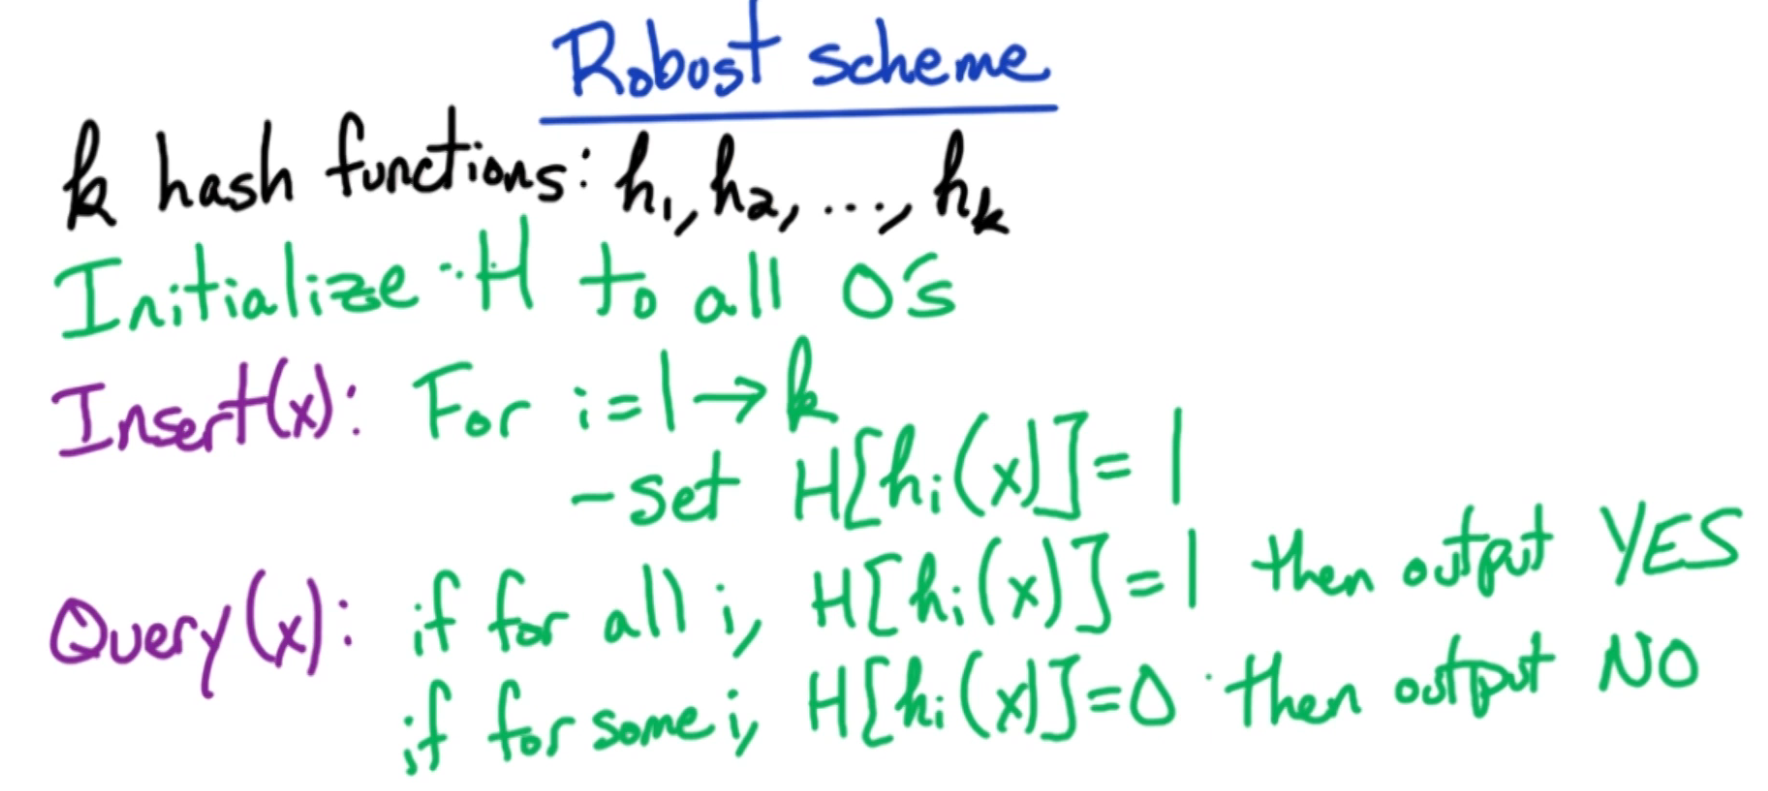 Robust scheme
k hash functions: h₁, h₂, ..., hₖ
Initialize: H to all 0's
Insert(x): For i=1→k
- set H[hᵢ(x)] = 1
Query(x): if for all i, H[hᵢ(x)] = 1 then output YES
if for some i, H[hᵢ(x)] = 0 then output NO